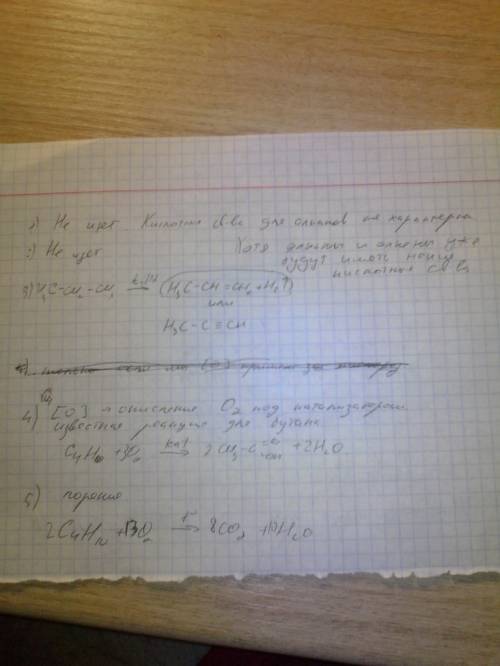 1) Не идет. Кислотные св-ва для алканов не характерны
2) Не идет Хотя алкины и алкены уже
будут иметь
кислотные св-ва
3) H₃C-CH₂-CH₃ → (H₃C-CH=CH₂+H₂↑)
или
H₃C-C≡CH
4) [O] - окисление O₂ под катализатором
известная реакция для бутана
C₄H₁₀ + O₂ →(kat) 2CH₃-C=O -OH + 2H₂O
5) горение
2C₄H₁₀ + 13O₂ →(t°) 8CO₂ + 10H₂O